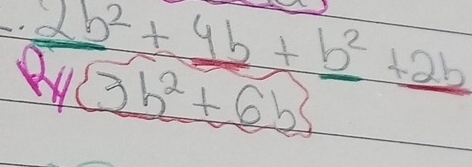 2b² + 4b + b² + 2b
R// 3b² + 6b